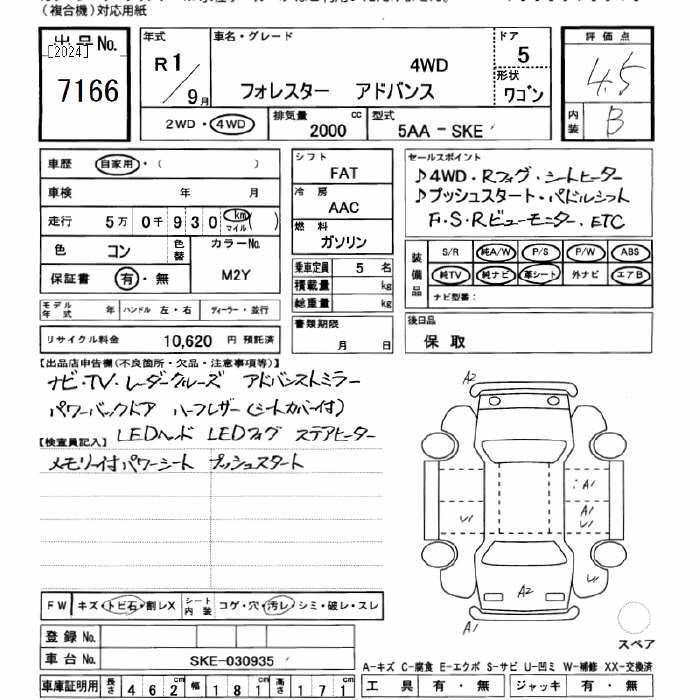 （複合機）対応用紙
出品No.
[2024]
7166
年式
R1/9月
車名・グレード
4WD
フォレスター アドバンス
ドア
5
形状
ワゴン
2WD・4WD
排気量
2000 cc
型式
5AA-SKE
評価点
4.5
内装
B
車歴 自家用・（ ）
車検 年 月
走行 5万0千930 km マイル ( )
色 コン 色替
カラーNo.
M2Y
保証書 有・無
モデル年式 年 ハンドル 左・右 ディーラー・並行
リサイクル料金 10,620 円 預託済
シフト
FAT
冷房
AAC
燃料
ガソリン
乗車定員 5 名
積載量 kg
総重量 kg
書類期限
月 日
セールスポイント
♪4WD・Rフォグ・シートヒーター
♪プッシュスタート・パドルシフト
F・S・Rビューモニター、ETC
装備品
S/R 純A/W P/S P/W ABS
純TV 純ナビ 革シート 外ナビ エアB
ナビ型番：
後日品
保 取
【出品店申告欄(不良箇所・欠品・注意事項等)】
ナビ・TV・レーダークルーズ アドバンストミラー
パワーバックドア ハーフレザー(シートカバー付)
LEDヘッド LEDフォグ ステアヒーター
【検査員記入】
メモリー付パワーシート プッシュスタート
A2
A1
U1
A1
U1
A2
A1
スペア
FW キズ・トビ石・割レX
シート内装 コゲ・穴・汚レ・シミ・破レ・スレ
登録No.
車台No. SKE-030935
車庫証明用 長さ 462cm 幅 181cm 高さ 171cm
A-キズ C-腐食 E-エクボ S-サビ U-凹ミ W-補修 XX-交換済
工具 有・無 ジャッキ 有・無